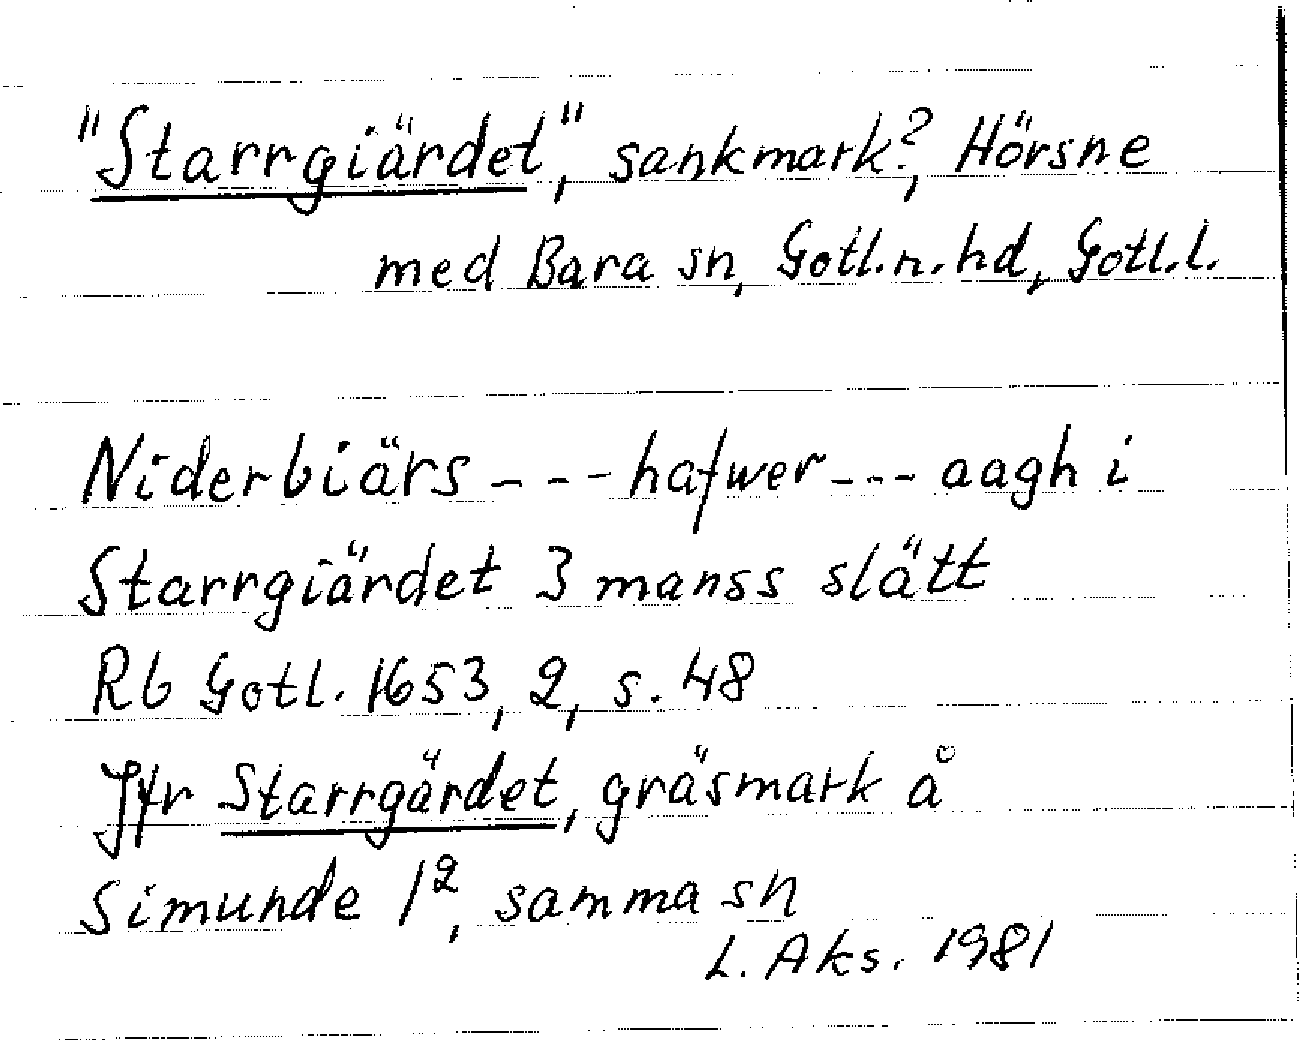 "Starrgiärdet", sankmark?, Hörsne
med Bara sn, Gotl.n.hd, Gotl.l.
Niderbiärs - - - hafwer - - - aagh i
Starrgiärdet 3 manss slätt
Rb Gotl. 1653, 2, s. 48
Jfr Starrgärdet, gräsmark å
Simunde 1², samma sn
L. Aks. 1981